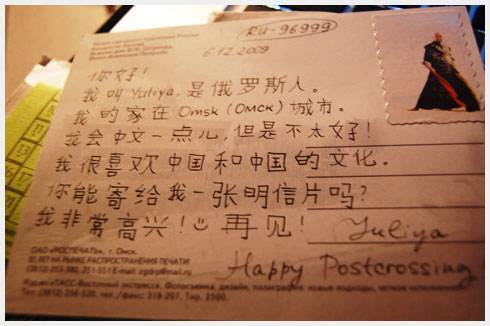 RU-96999
6.12.2009
你好!
我叫 Yuliya, 是俄罗斯人。
我的家在 Omsk (ОМСК) 城市。
我会中文一点儿, 但是不太好!
我很喜欢中国和中国的文化。
你能寄给我一张明信片吗?
我非常高兴! 再见! Yuliya
Happy Postcrossing
ОАО «РОСПЕЧАТЬ», г. Омск.
80 ЛЕТ НА РЫНКЕ РАСПРОСТРАНЕНИЯ ПЕЧАТИ